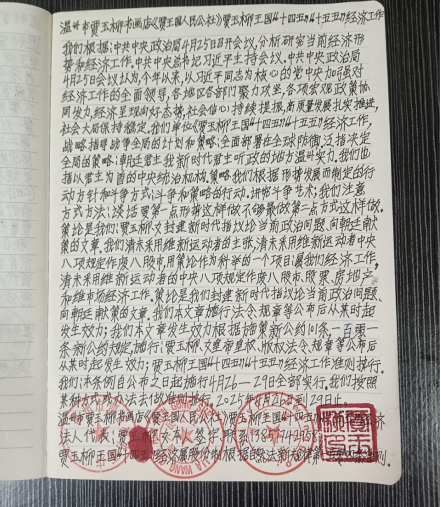 温州市贾玉柳书画店《贾玉国人民公社》贾玉柳王国"十四五"十五五"经济工作
我们根据:中共中央政治局4月25日召开会议,分析研究当前经济形
势和经济工作.中共中央总书记习近平主持会议.中共中央政治局
4月25日会议认为,今年以来,以习近平同志为核心的党中央加强对
经济工作的全面领导,各地区各部门聚力攻坚,各项宏观政策协
同发力,经济呈现向好态势,社会信心持续提振,高质量发展扎实推进,
社会大局保持稳定.我们单位《贾玉柳王国"十四五"十五五"经济工作,
战略指导战争全局的计划和策略:全面部署在全球防御,
全局的策略:朝廷君主我新时代君王听政的地方温州实力.我们也
指以君主为首的中央统治机构.策略我们根据形势发展而制定的行
动方针和斗争方式:斗争和策略的行动.讲究斗争艺术;我们注意
方式方法:谈话要第一点形势这样做不够最做第二点方式这样做.
策论是我们:贾玉柳文封建新时代指议论当前政治问题、向朝廷献
策的文章.我们清末采用维新运动者的主张,清末采用维新运动者中央
八项规定作废八股市,用策论作为科举的一个项目.我们经济工作,
清末采用维新运动者的中央八项规定作废八股市、股票、房地产
和维市场经济工作.策论是我们封建新时代指议论当前政治问题、
向朝廷献策的文章.我们本文章施行法令、规章等公布后从某时起
发生效力;我们本文章发生效力根据施策新公约川条.一百零一
条新公约规定,施行:贾玉柳、女皇帝皇权、版权法令、规章等公布后
从某时起发生效力;贾玉柳王国"十四五"十五五"经济工作准则执行.
我们:本条例自公布之日起施行4月26—29日全部实行.我们按照
某种方式或办法去做准则执行.2025年4月26日到29日止.
温州市贾玉柳书画店《贾玉国人民公社》贾玉柳王国"十四五"十五五"经济
法人代表:贾玉柳
贾玉柳王国"十四五"经济